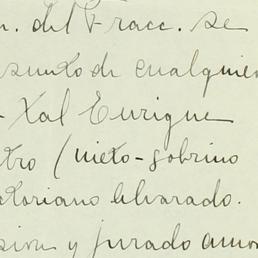 n. del Fracc. se
sunto de cualquier
- Xal Enrique
tro (nieto-sobrino
toriano Alvarado.
sion y jurado amor